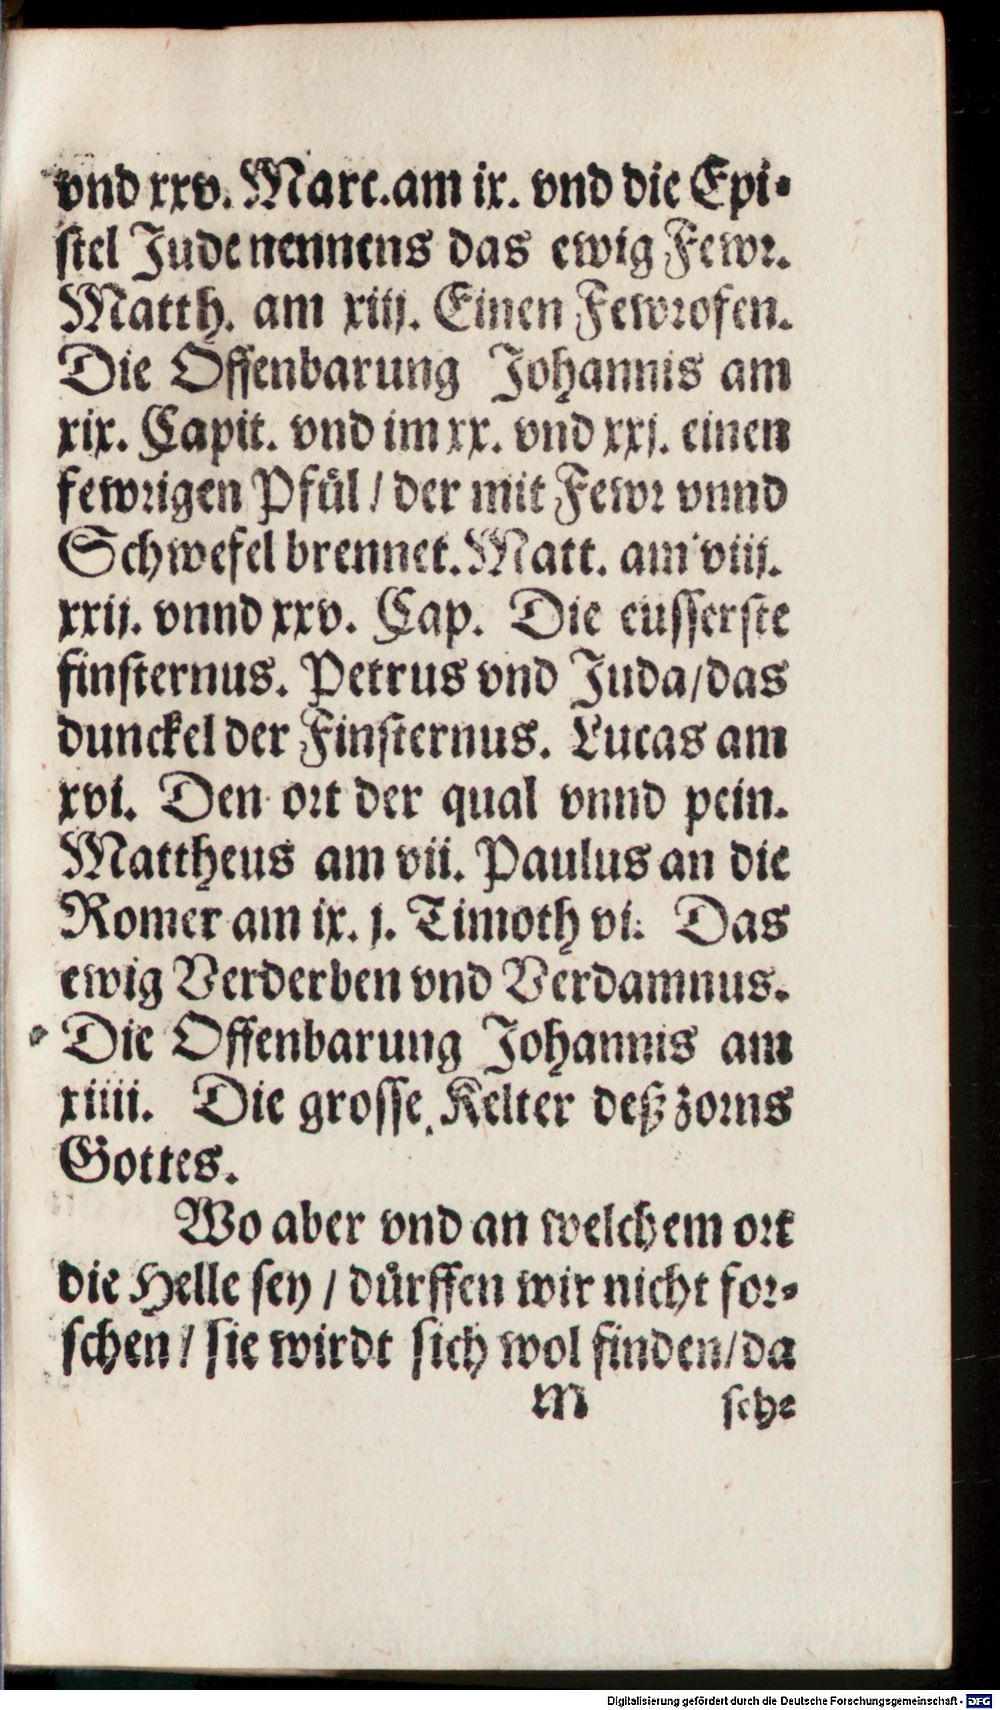 vnd xxv. Marc. am ix. vnd die Epi-
stel Jude nennens das ewig Fewr.
Matth. am xiij. Einen Fewrofen.
Die Offenbarung Johannis am
xix. Capit. vnd im xx. vnd xxj. einen
fewrigen Pfůl / der mit Fewr vnnd
Schwefel brennet. Matt. am viij.
xxij. vnnd xxv. Cap. Die eusserste
finsternus. Petrus vnd Juda / das
dunckel der Finsternus. Lucas am
xvi. Den ort der qual vnnd pein.
Mattheus am vii. Paulus an die
Romer am ix. j. Timoth vi. Das
ewig Verderben vnd Verdamnus.
Die Offenbarung Johannis am
xiiii. Die grosse Kelter deß zorns
Gottes.
Wo aber vnd an welchem ort
die Helle sey / důrffen wir nicht for-
schen / sie wirdt sich wol finden / da
M sche
Digitalisierung gefördert durch die Deutsche Forschungsgemeinschaft - DFG